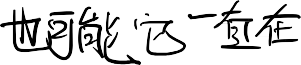 也可能它一直在